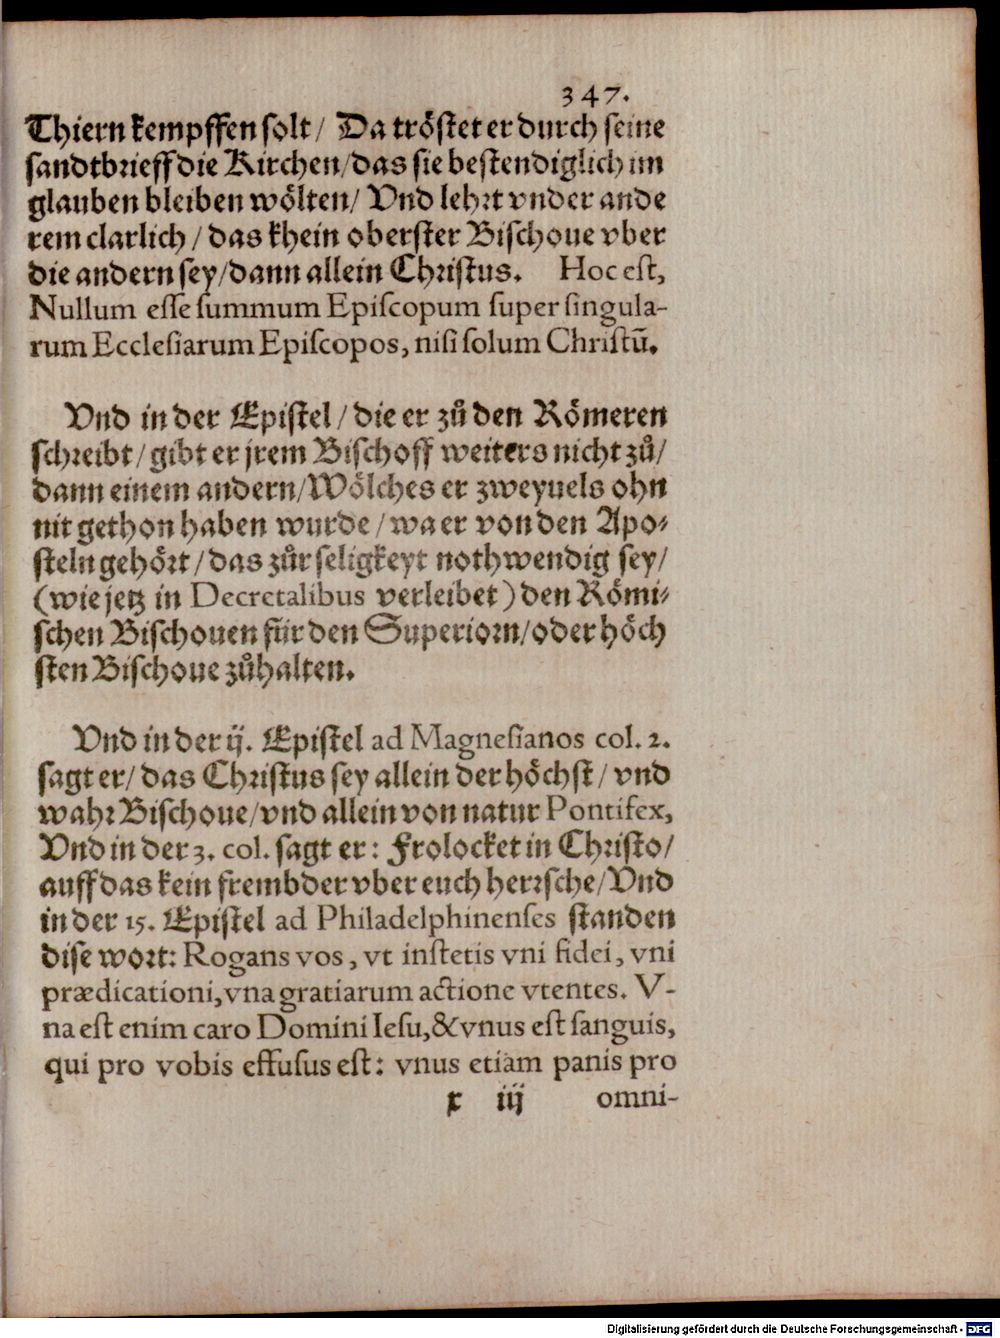 347.
Thiern kempffen solt/ Da tröstet er durch seine
sandtbrieff die Kirchen/das sie bestendiglich im
glauben bleiben wölten/ Vnd lehrt vnder ande
rem clarlich/ das khein oberster Bischoue vber
die andern sey/dann allein Christus. Hoc est,
Nullum esse summum Episcopum super singula-
rum Ecclesiarum Episcopos, nisi solum Christũ.
Vnd in der Epistel/die er zů den Römeren
schreibt/gibt er jrem Bischoff weiters nicht zů/
dann einem andern/Wölches er zweyuels ohn
nit gethon haben wurde/wa er von den Apo-
steln gehört/das zůr seligkeyt nothwendig sey/
(wie jetz in Decretalibus verleibet) den Römi-
schen Bischouen für den Superiorn/oder höch
sten Bischoue zůhalten.
Vnd in der ij. Epistel ad Magnesianos col. 2.
sagt er/das Christus sey allein der höchst/vnd
wahr Bischoue/vnd allein von natur Pontifex,
Vnd in der 3. col. sagt er: Frolocket in Christo/
auff das kein frembder vber euch herrsche/Vnd
in der 15. Epistel ad Philadelphinenses standen
dise wort: Rogans vos, vt instetis vni fidei, vni
prædicationi, vna gratiarum actione vtentes. V-
na est enim caro Domini Iesu, & vnus est sanguis,
qui pro vobis effusus est: vnus etiam panis pro
x iij omni-
Digitalisierung gefördert durch die Deutsche Forschungsgemeinschaft - DFG